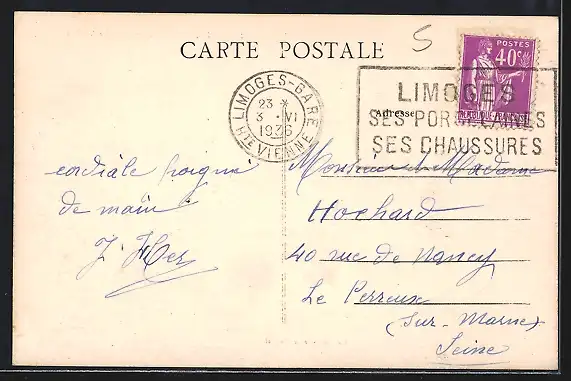 CARTE POSTALE
5
POSTES
40c
LIMOGES-GARE
23 *
3 - VI
1936
Hte VIENNE
LIMOGES
SES PORCELAINES
SES CHAUSSURES
Adresse
cordiale poigné
de main
J. Her
Monsieur et Madame
Hochard
40 rue de Nancy
Le Perreux
(Sur-Marne)
Seine